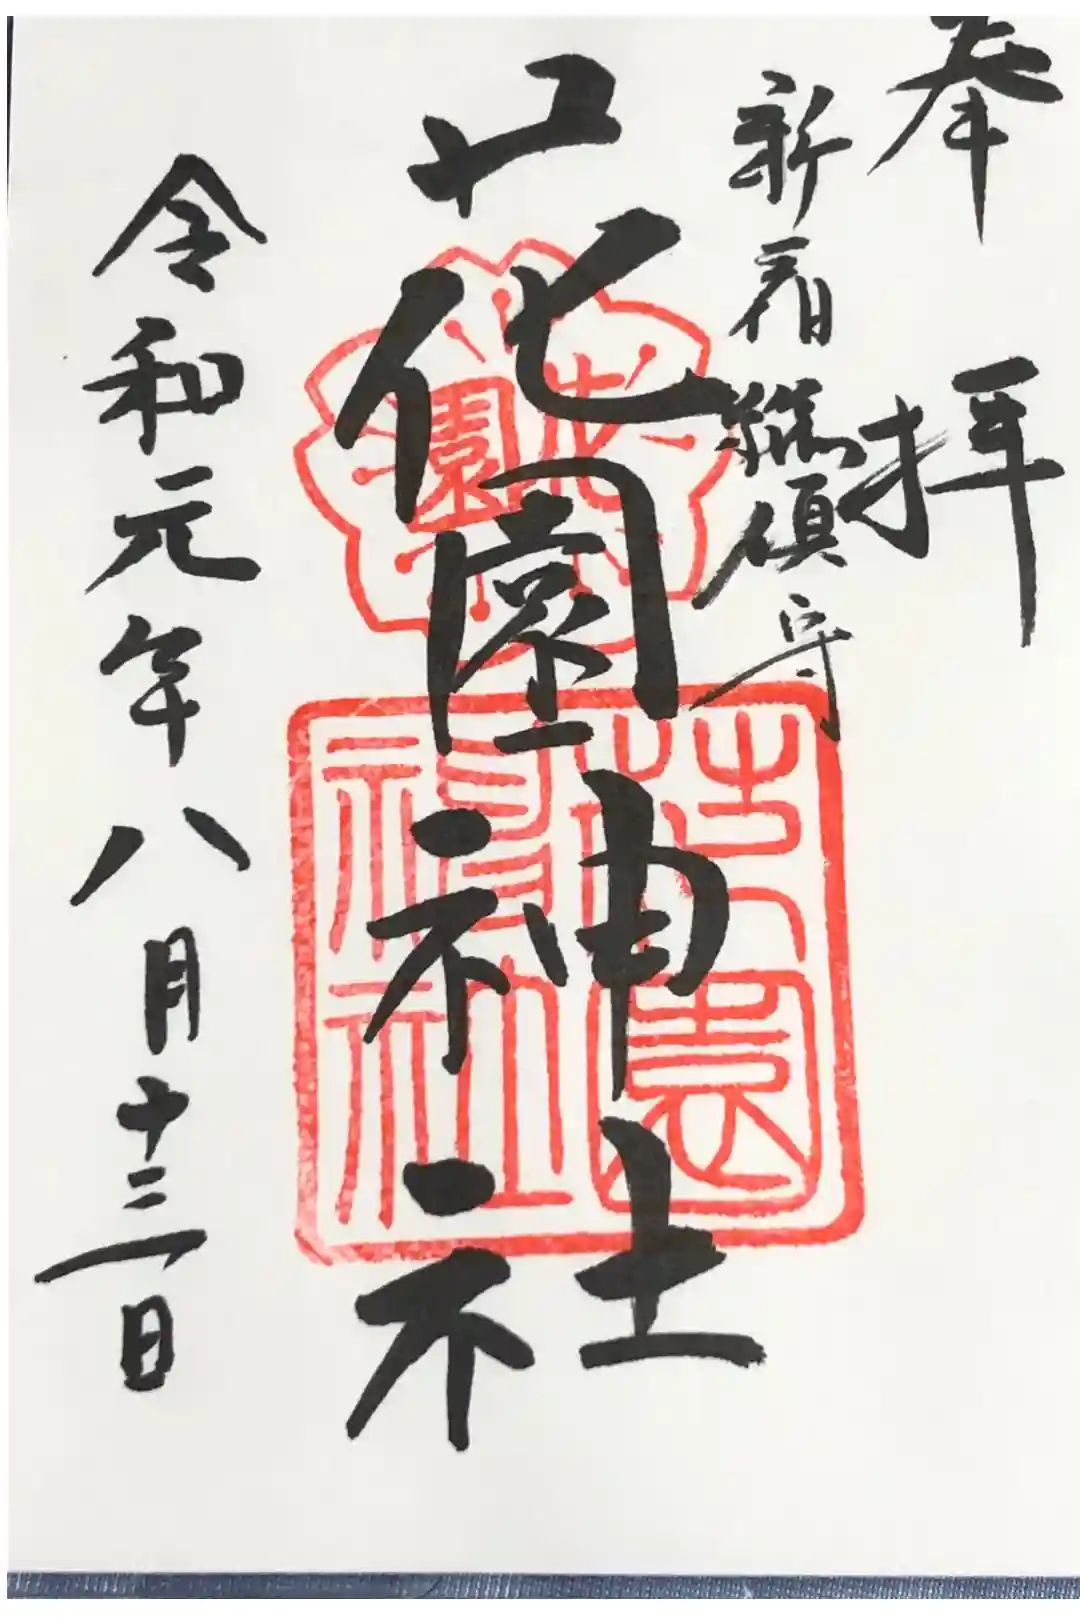 奉拝
新宿總鎮守
花園神社
花園
花園神社
令和元年八月十三日